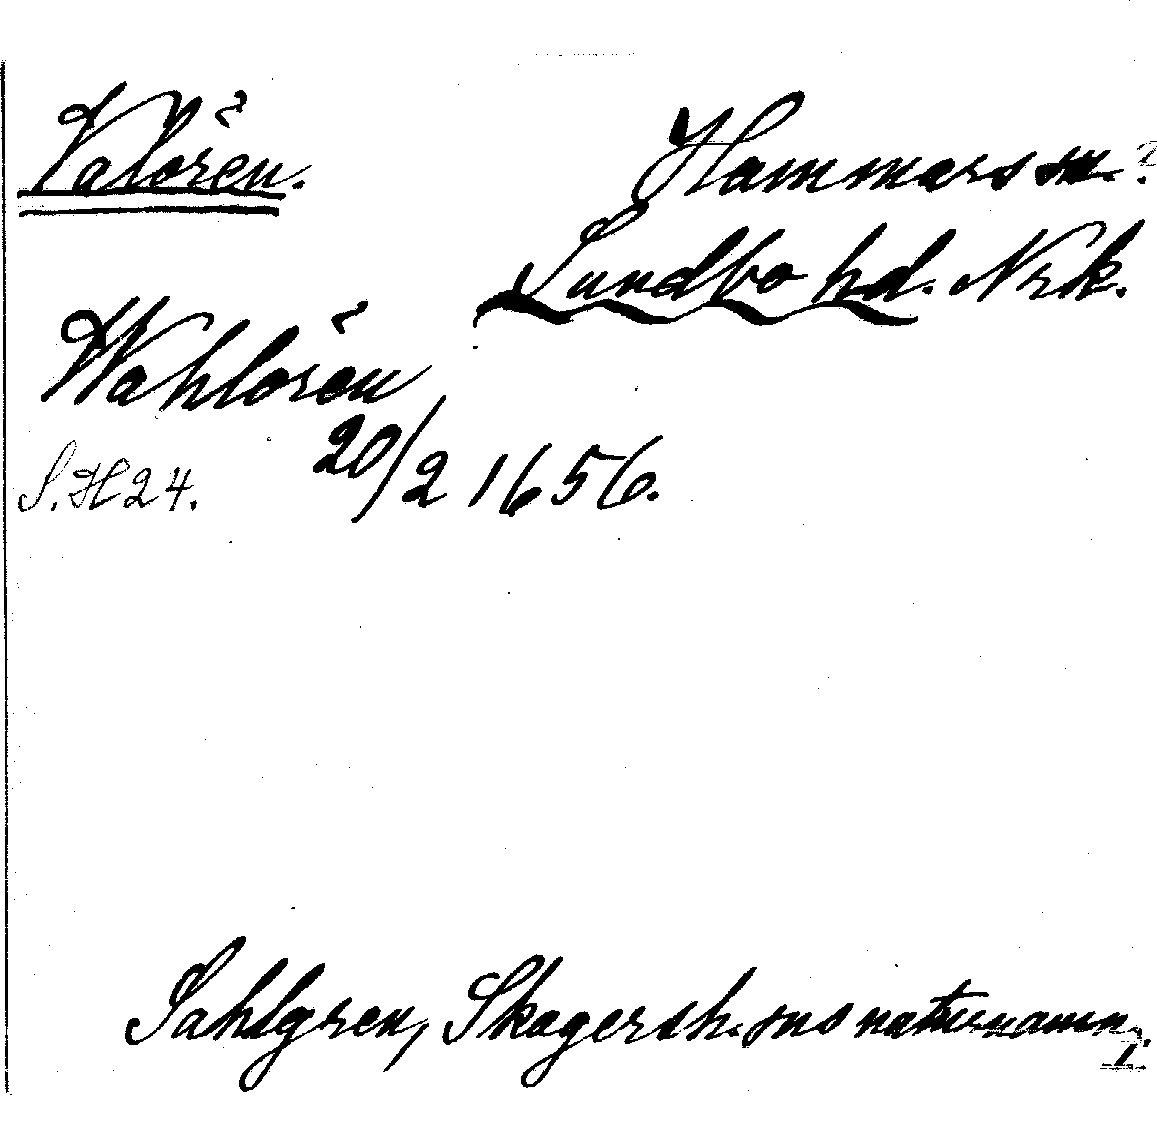 Valörén.
Hammars sn.?
Sundbo hd. Nrk.
Wahlörén
S. H 24. 20/2 1656.
Sahlgren, Skagersh. sns naturnamn,
1.